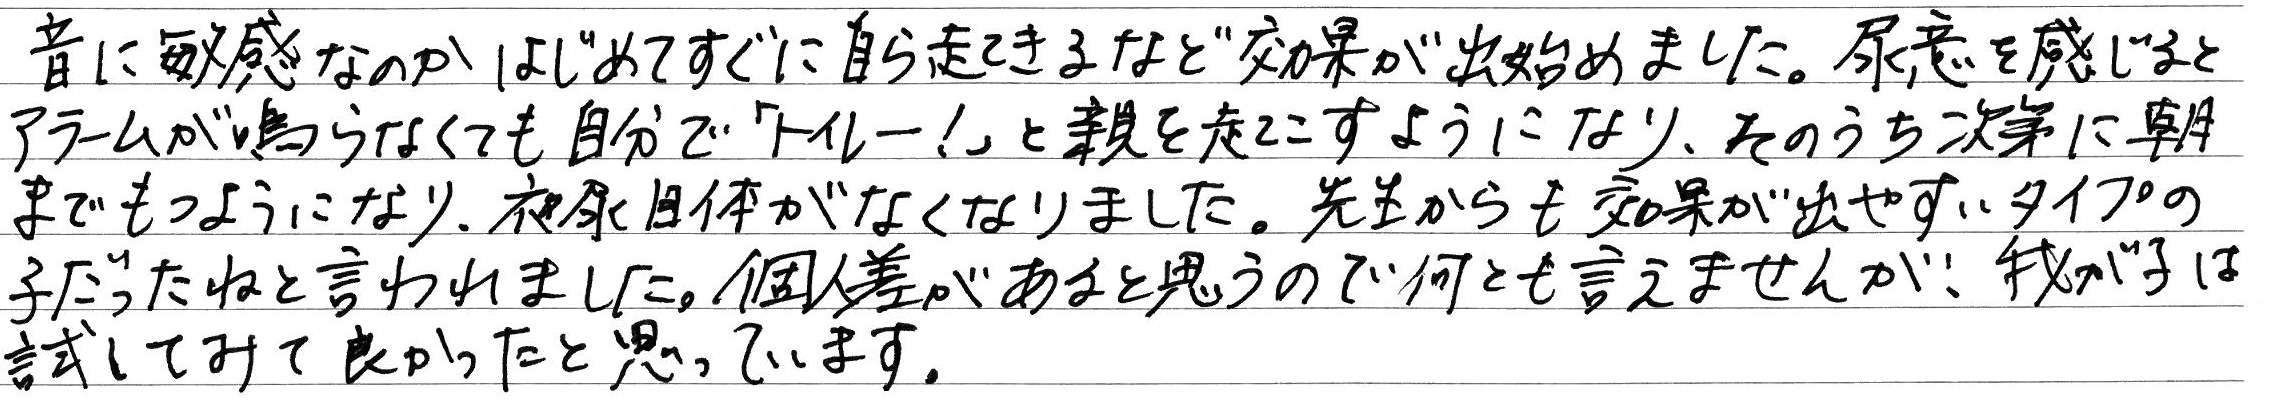 音に敏感なのかはじめてすぐに自ら起きてきるなど効果が出始めました。尿意を感じると
アラームが鳴らなくても自分で「トイレー!」と親を起こすようになり、そのうち次第に朝
までもつようになり、夜尿自体がなくなりました。先生からも効果が出やすいタイプの
子だったねと言われました。個人差があると思うので何とも言えませんが、我が子は
試してみて良かったと思っています。